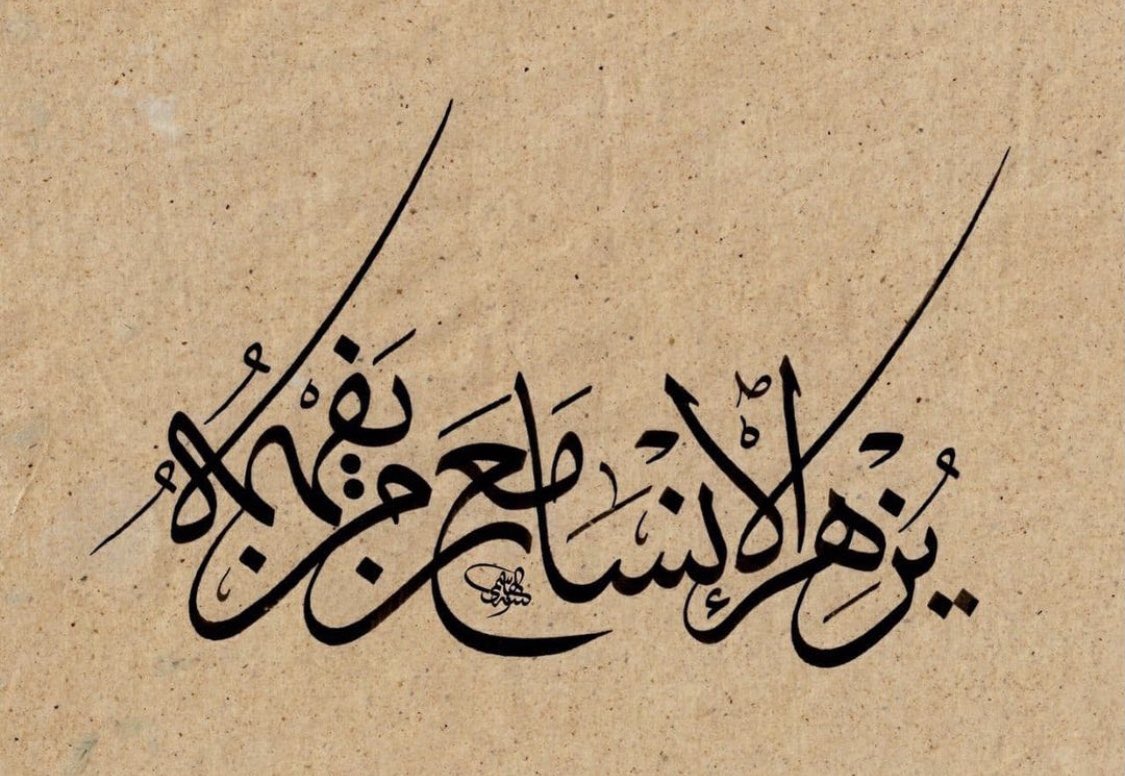 يُزْهِر الْإِنْسَان مَعَ من يَفْهمُهُ